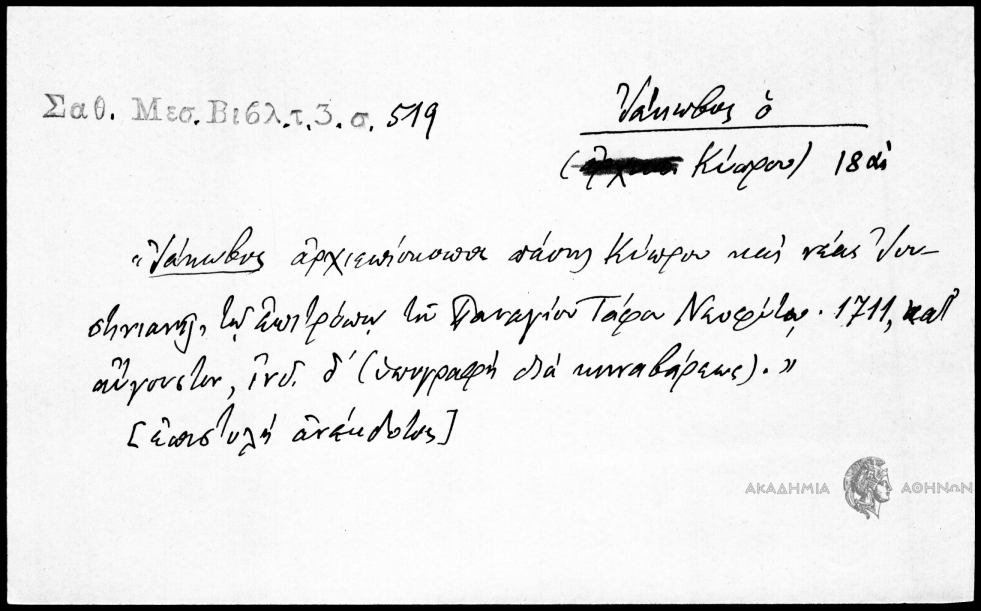 Σαθ. Μεσ. Βιβλ. τ. 3. σ. 519
Ἰάκωβος ὁ
( Κύπρου) 18 αἰ
«Ἰάκωβος ἀρχιεπίσκοπος πάσης Κύπρου καὶ νέας Ἰου-
στινιανῆς, τῷ ἐπιτρόπῳ τοῦ Παναγίου Τάφου Νεοφύτῳ. 1711, κατ'
αὔγουστον, ἰνδ. δ' (ὑπογραφὴ διὰ κινναβάρεως).»
[ἐπιστολὴ ἀνέκδοτος]
ΑΚΑΔΗΜΙΑ ΑΘΗΝΩΝ